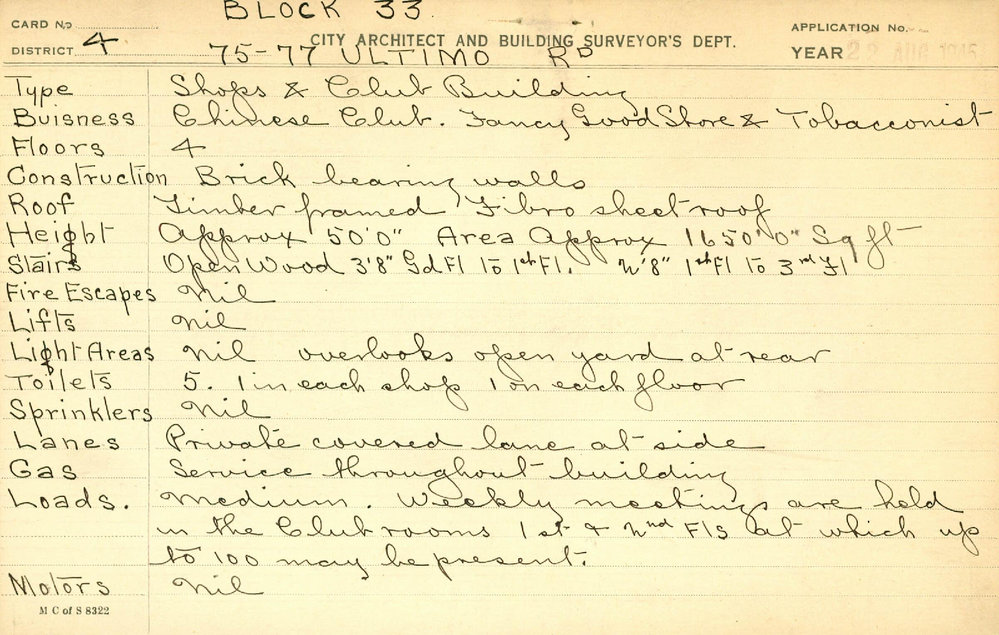 BLOCK 33.
CARD No
APPLICATION No.
DISTRICT 4
CITY ARCHITECT AND BUILDING SURVEYOR'S DEPT.
YEAR 22 AUG 1945
75-77 ULTIMO RD
Type Shops & Club Building
Buisness Chinese Club. Fancy Good Store & Tobacconist
Floors 4
Construction Brick bearing walls
Roof Timber framed Fibro sheet roof
Height Approx 50'0" Area Approx 1650'0" Sq ft
Stairs Open Wood 3'8" Gd Fl to 1st Fl. 2'8" 1st Fl to 3rd Fl
Fire Escapes Nil
Lifts Nil
Light Areas Nil overlooks open yard at rear
Toilets 5. 1 in each shop 1 on each floor
Sprinklers Nil
Lanes Private covered lane at side
Gas Service throughout building
Loads. Medium. Weekly meetings are held
in the Club rooms 1st & 2nd Fls at which up
to 100 may be present.
Motors Nil
M C of S 8322